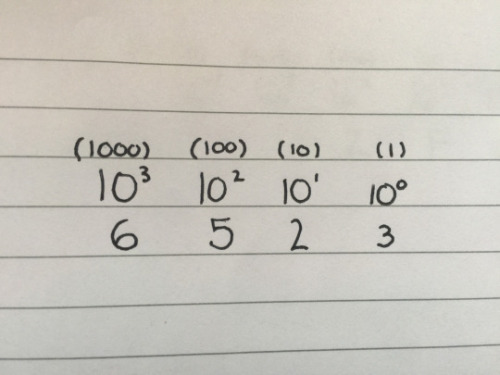 (1000) (100) (10) (1)
10³ 10² 10¹ 10⁰
6 5 2 3